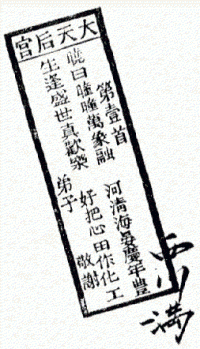 大天后宮
第壹首
曉日曈曈萬象融
河清海晏慶年豐
生逢盛世真歡樂
好把心田作化工
弟子
敬謝
西川滿